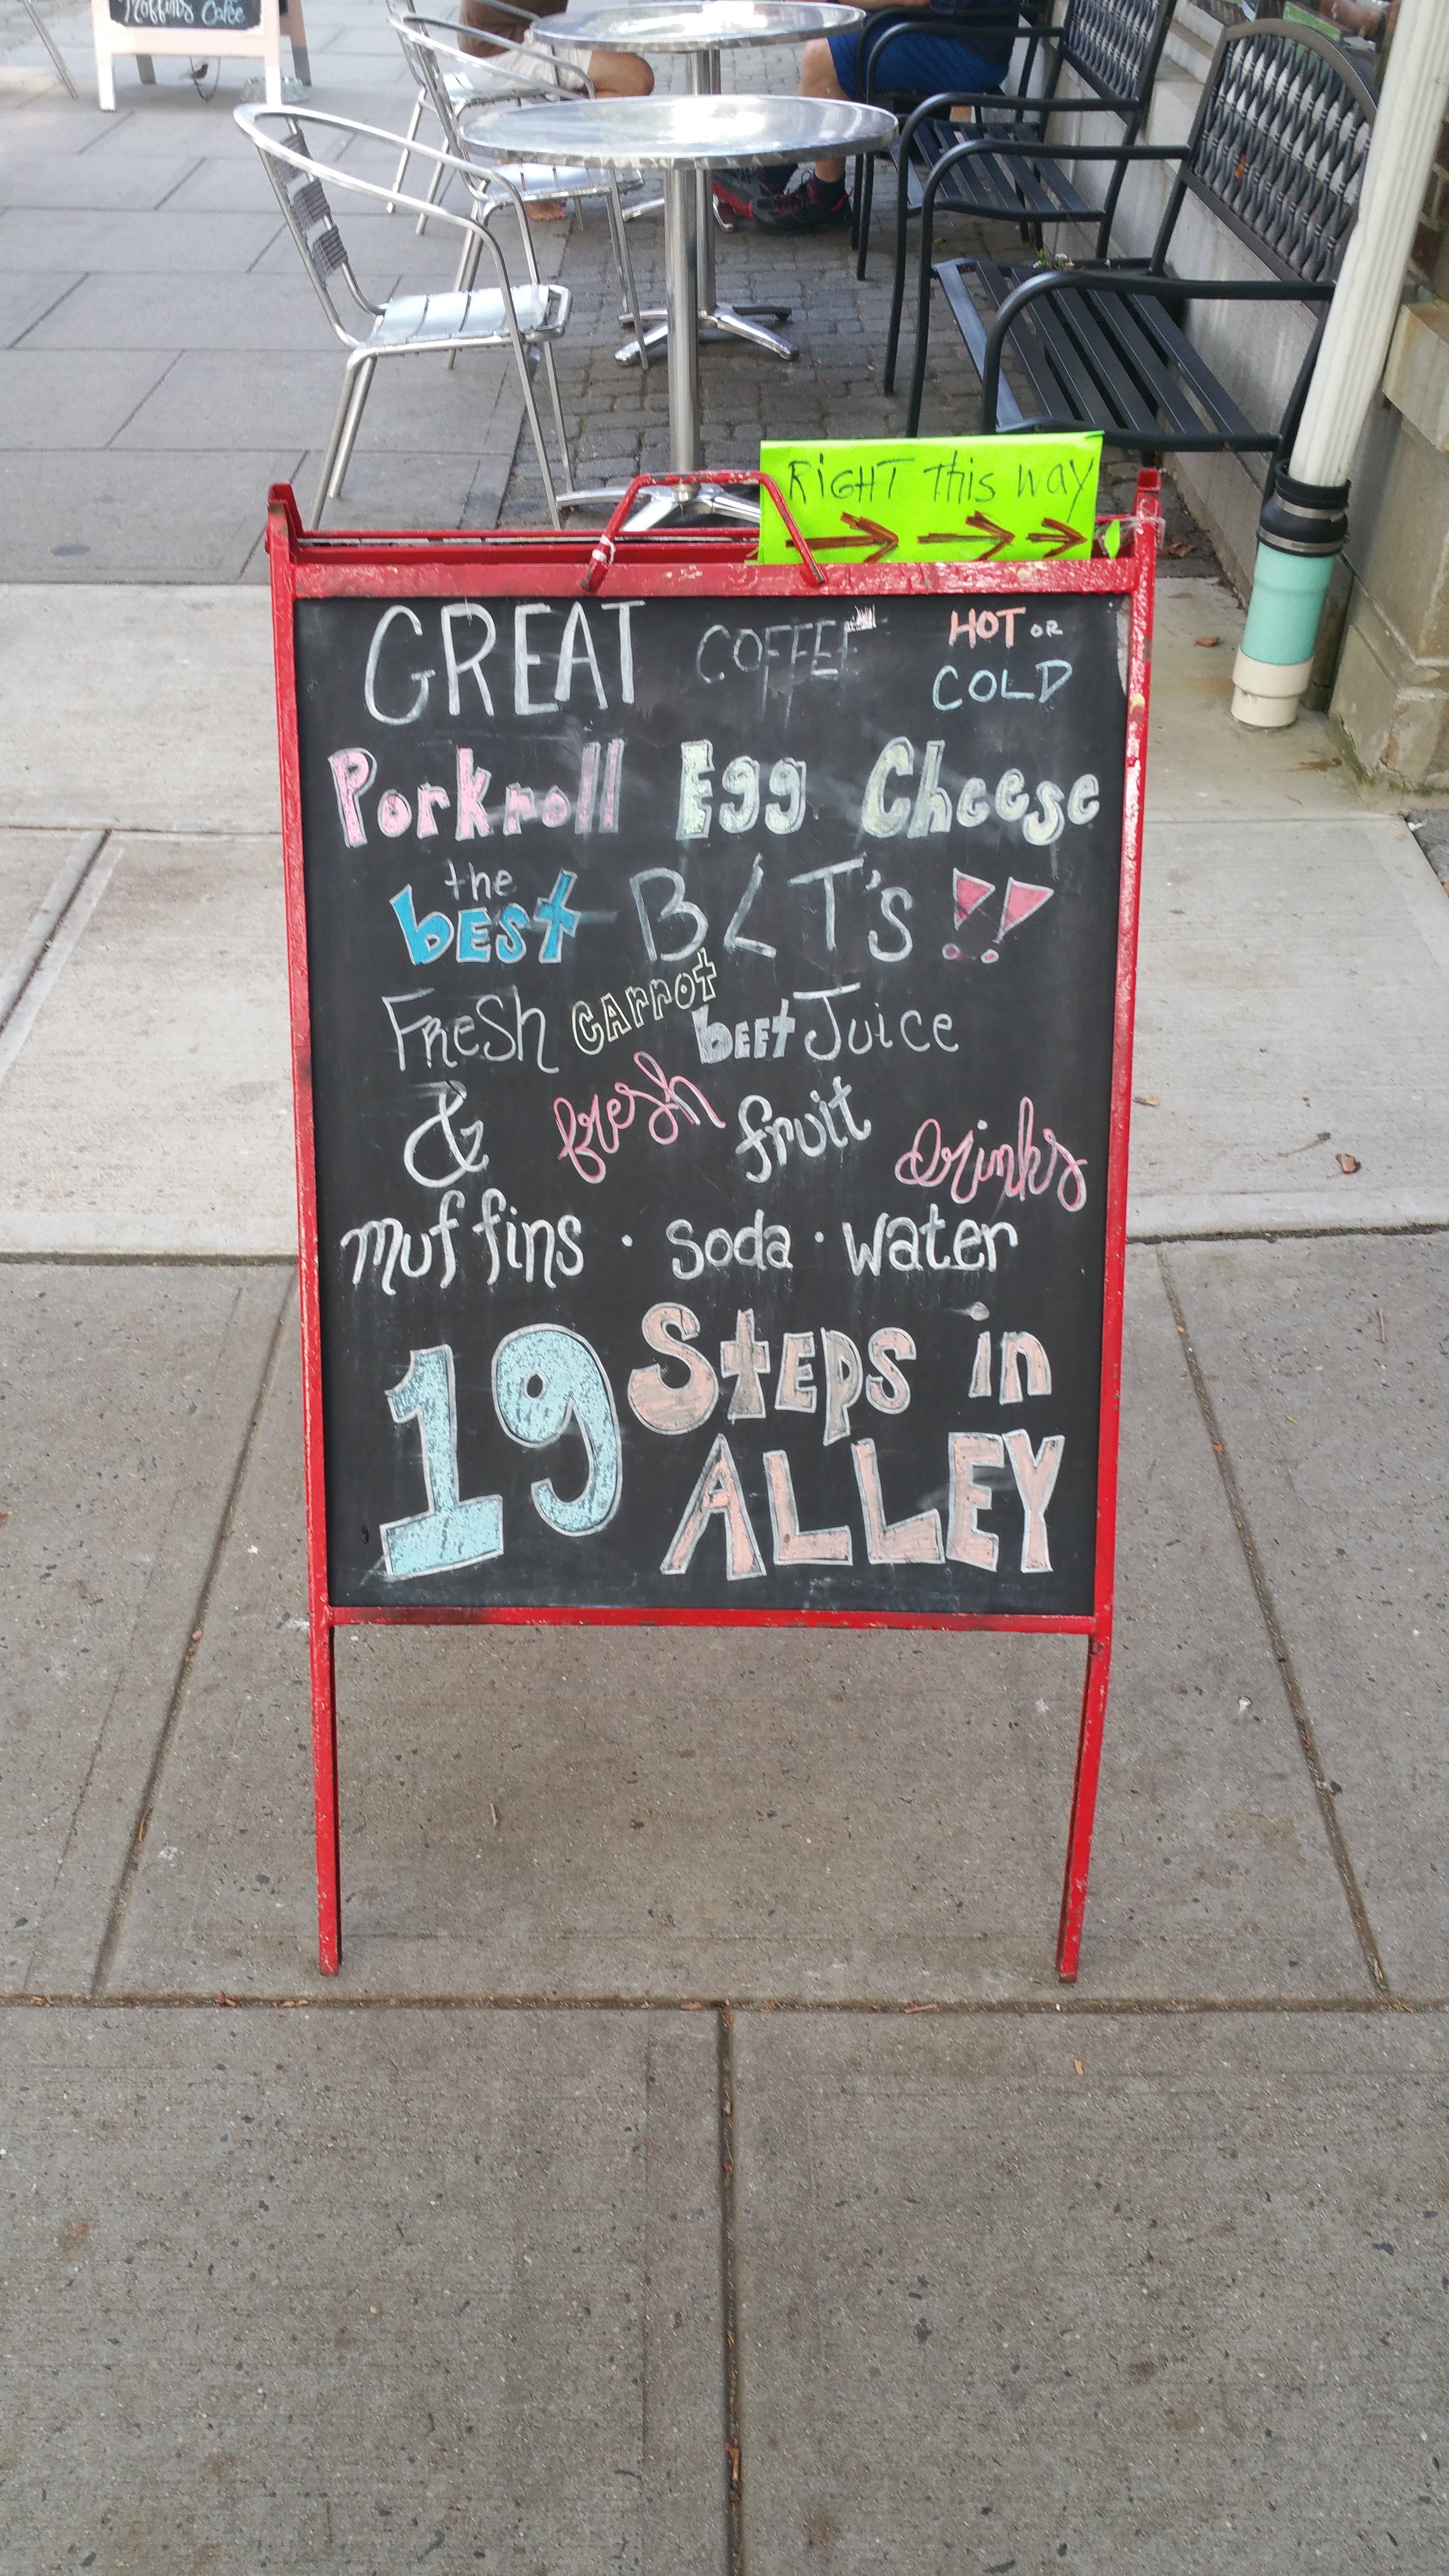 Muffins Cafe
RIGHT this way
GREAT COFFEE HOT OR
COLD
Porkroll Egg Cheese
the
best BLT's !!
Fresh carrot beet Juice
& fresh fruit drinks
muffins · soda · water
19 Steps in
ALLEY